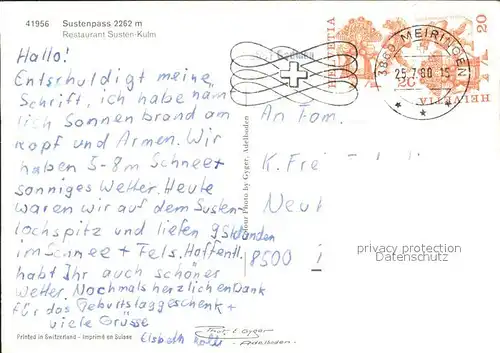 41956 Sustenpass 2262 m
Restaurant Susten-Kulm
Hallo!
Entschuldigt meine
Schrift, ich habe näm
lich Sonnenbrand am
Kopf und Armen. Wir
haben 5-8m Schnee+
sonniges Wetter. Heute
waren wir auf dem Susten-
lochspitz und liefen 9 Stunden
im Schnee + Fels. Hoffentl.
habt Ihr auch schönes
Wetter. Nochmals herzlichen Dank
für das Geburtstaggeschenk +
viele Grüsse
Elsbeth
Printed in Switzerland - Imprimé en Suisse
Colour Photo by Gyger, Adelboden
HELVETIA
20
HELVETIA
20
3860 MEIRINGEN
25.7.80 15
An Fam.
K. Frei
Neu
8500
privacy protection
Phot. E. Gyger
Adelboden